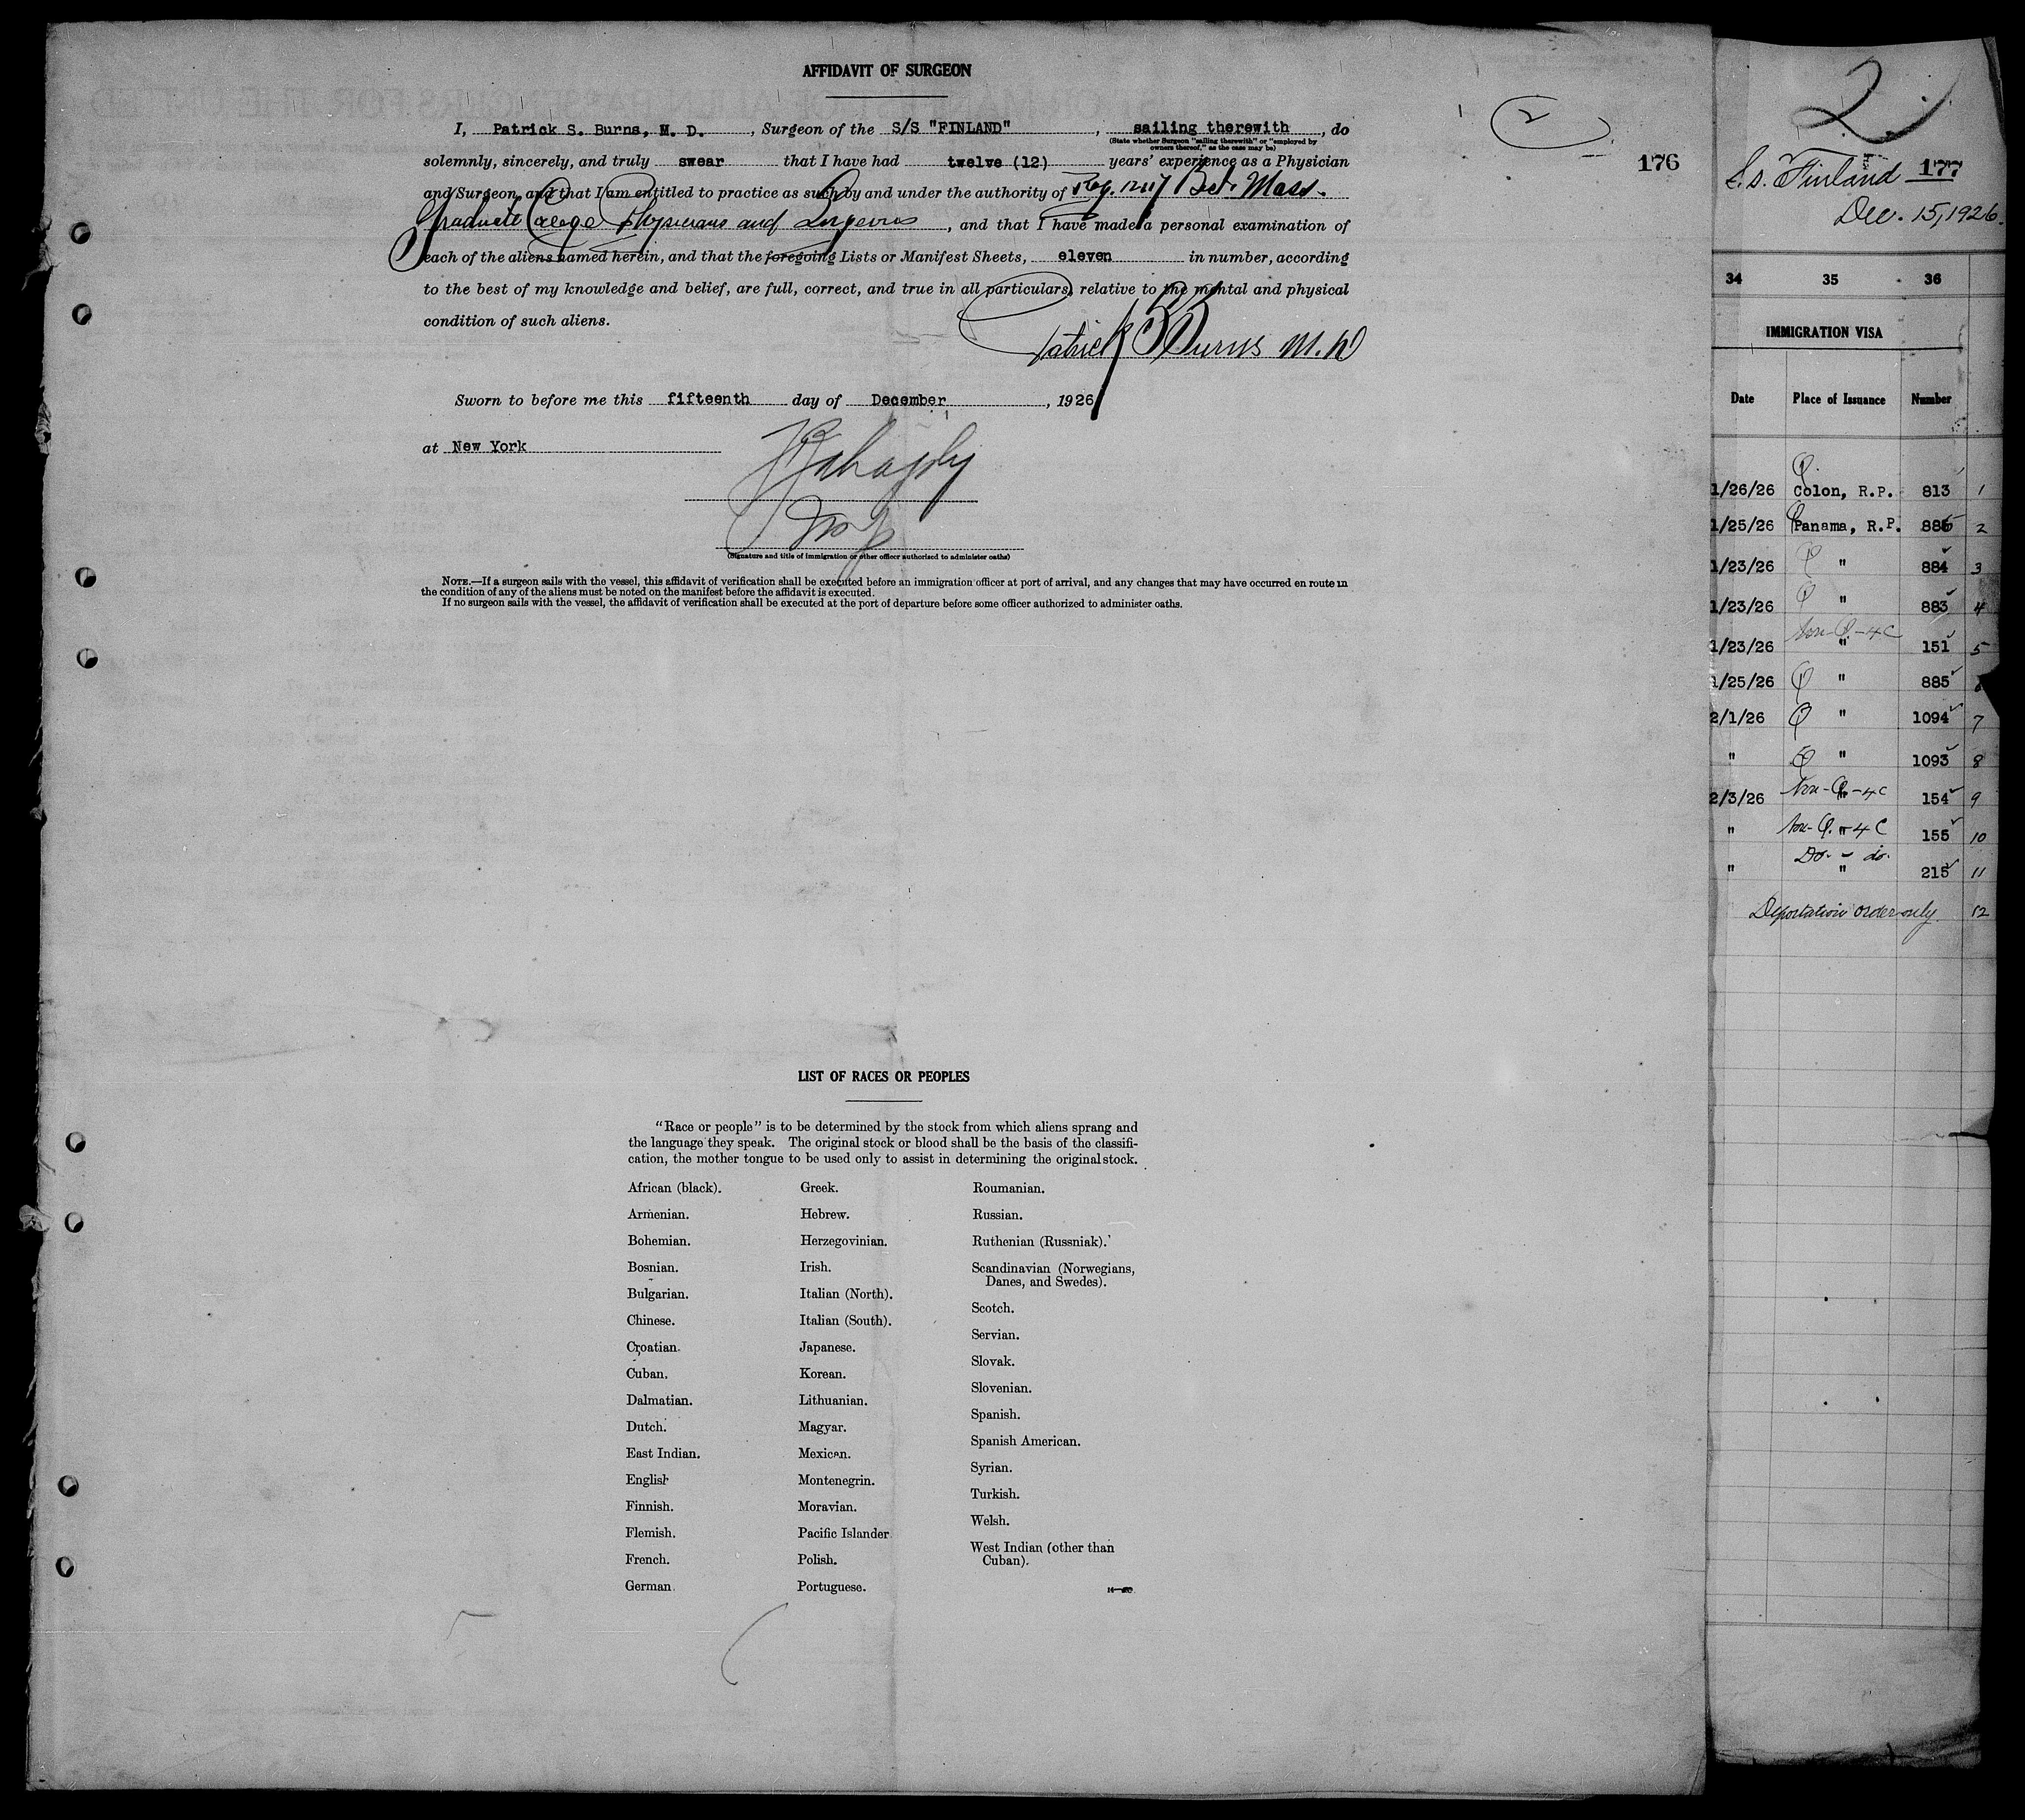 AFFIDAVIT OF SURGEON
2
176
I, Patrick S. Burns, M. D. , Surgeon of the S/S "FINLAND" , sailing therewith , do
(State whether Surgeon "sailing therewith" or "employed by
owners thereof," as the case may be)
solemnly, sincerely, and truly swear that I have had twelve (12) years' experience as a Physician
and Surgeon, and that I am entitled to practice as such by and under the authority of Reg. Mass.
Graduate College Physicians and Surgeons , and that I have made a personal examination of
each of the aliens named herein, and that the foregoing Lists or Manifest Sheets, eleven in number, according
to the best of my knowledge and belief, are full, correct, and true in all particulars, relative to the mental and physical
condition of such aliens.
Patrick S Burns M.D
Sworn to before me this fifteenth day of December , 1926
at New York
(Signature and title of immigration or other officer authorized to administer oaths)
NOTE.—If a surgeon sails with the vessel, this affidavit of verification shall be executed before an immigration officer at port of arrival, and any changes that may have occurred en route in
the condition of any of the aliens must be noted on the manifest before the affidavit is executed.
If no surgeon sails with the vessel, the affidavit of verification shall be executed at the port of departure before some officer authorized to administer oaths.
LIST OF RACES OR PEOPLES
"Race or people" is to be determined by the stock from which aliens sprang and
the language they speak. The original stock or blood shall be the basis of the classifi-
cation, the mother tongue to be used only to assist in determining the original stock.
African (black).
Armenian.
Bohemian.
Bosnian.
Bulgarian.
Chinese.
Croatian.
Cuban.
Dalmatian.
Dutch.
East Indian.
English
Finnish.
Flemish.
French.
German.
Greek.
Hebrew.
Herzegovinian.
Irish.
Italian (North).
Italian (South).
Japanese.
Korean.
Lithuanian.
Magyar.
Mexican.
Montenegrin.
Moravian.
Pacific Islander.
Polish.
Portuguese.
Roumanian.
Russian.
Ruthenian (Russniak).
Scandinavian (Norwegians,
Danes, and Swedes).
Scotch.
Servian.
Slovak.
Slovenian.
Spanish.
Spanish American.
Syrian.
Turkish.
Welsh.
West Indian (other than
Cuban).
2
S.S. Finland 177
Dec. 15, 1926.
34 35 36
IMMIGRATION VISA
Date Place of Issuance Number
Q.
1/26/26 Colon, R.P. 813 1
1/25/26 Q Panama, R.P. 886 2
1/23/26 Q " 884 3
1/23/26 Q " 883 4
Non-Q-4C
1/23/26 " 151 5
1/25/26 Q " 885 6
2/1/26 Q " 1094 7
" Q " 1093 8
2/3/26 Non-Q-4C " 154 9
" Non-Q.-4C " 155 10
Do. - do.
" " 215 11
Deportation order only 12